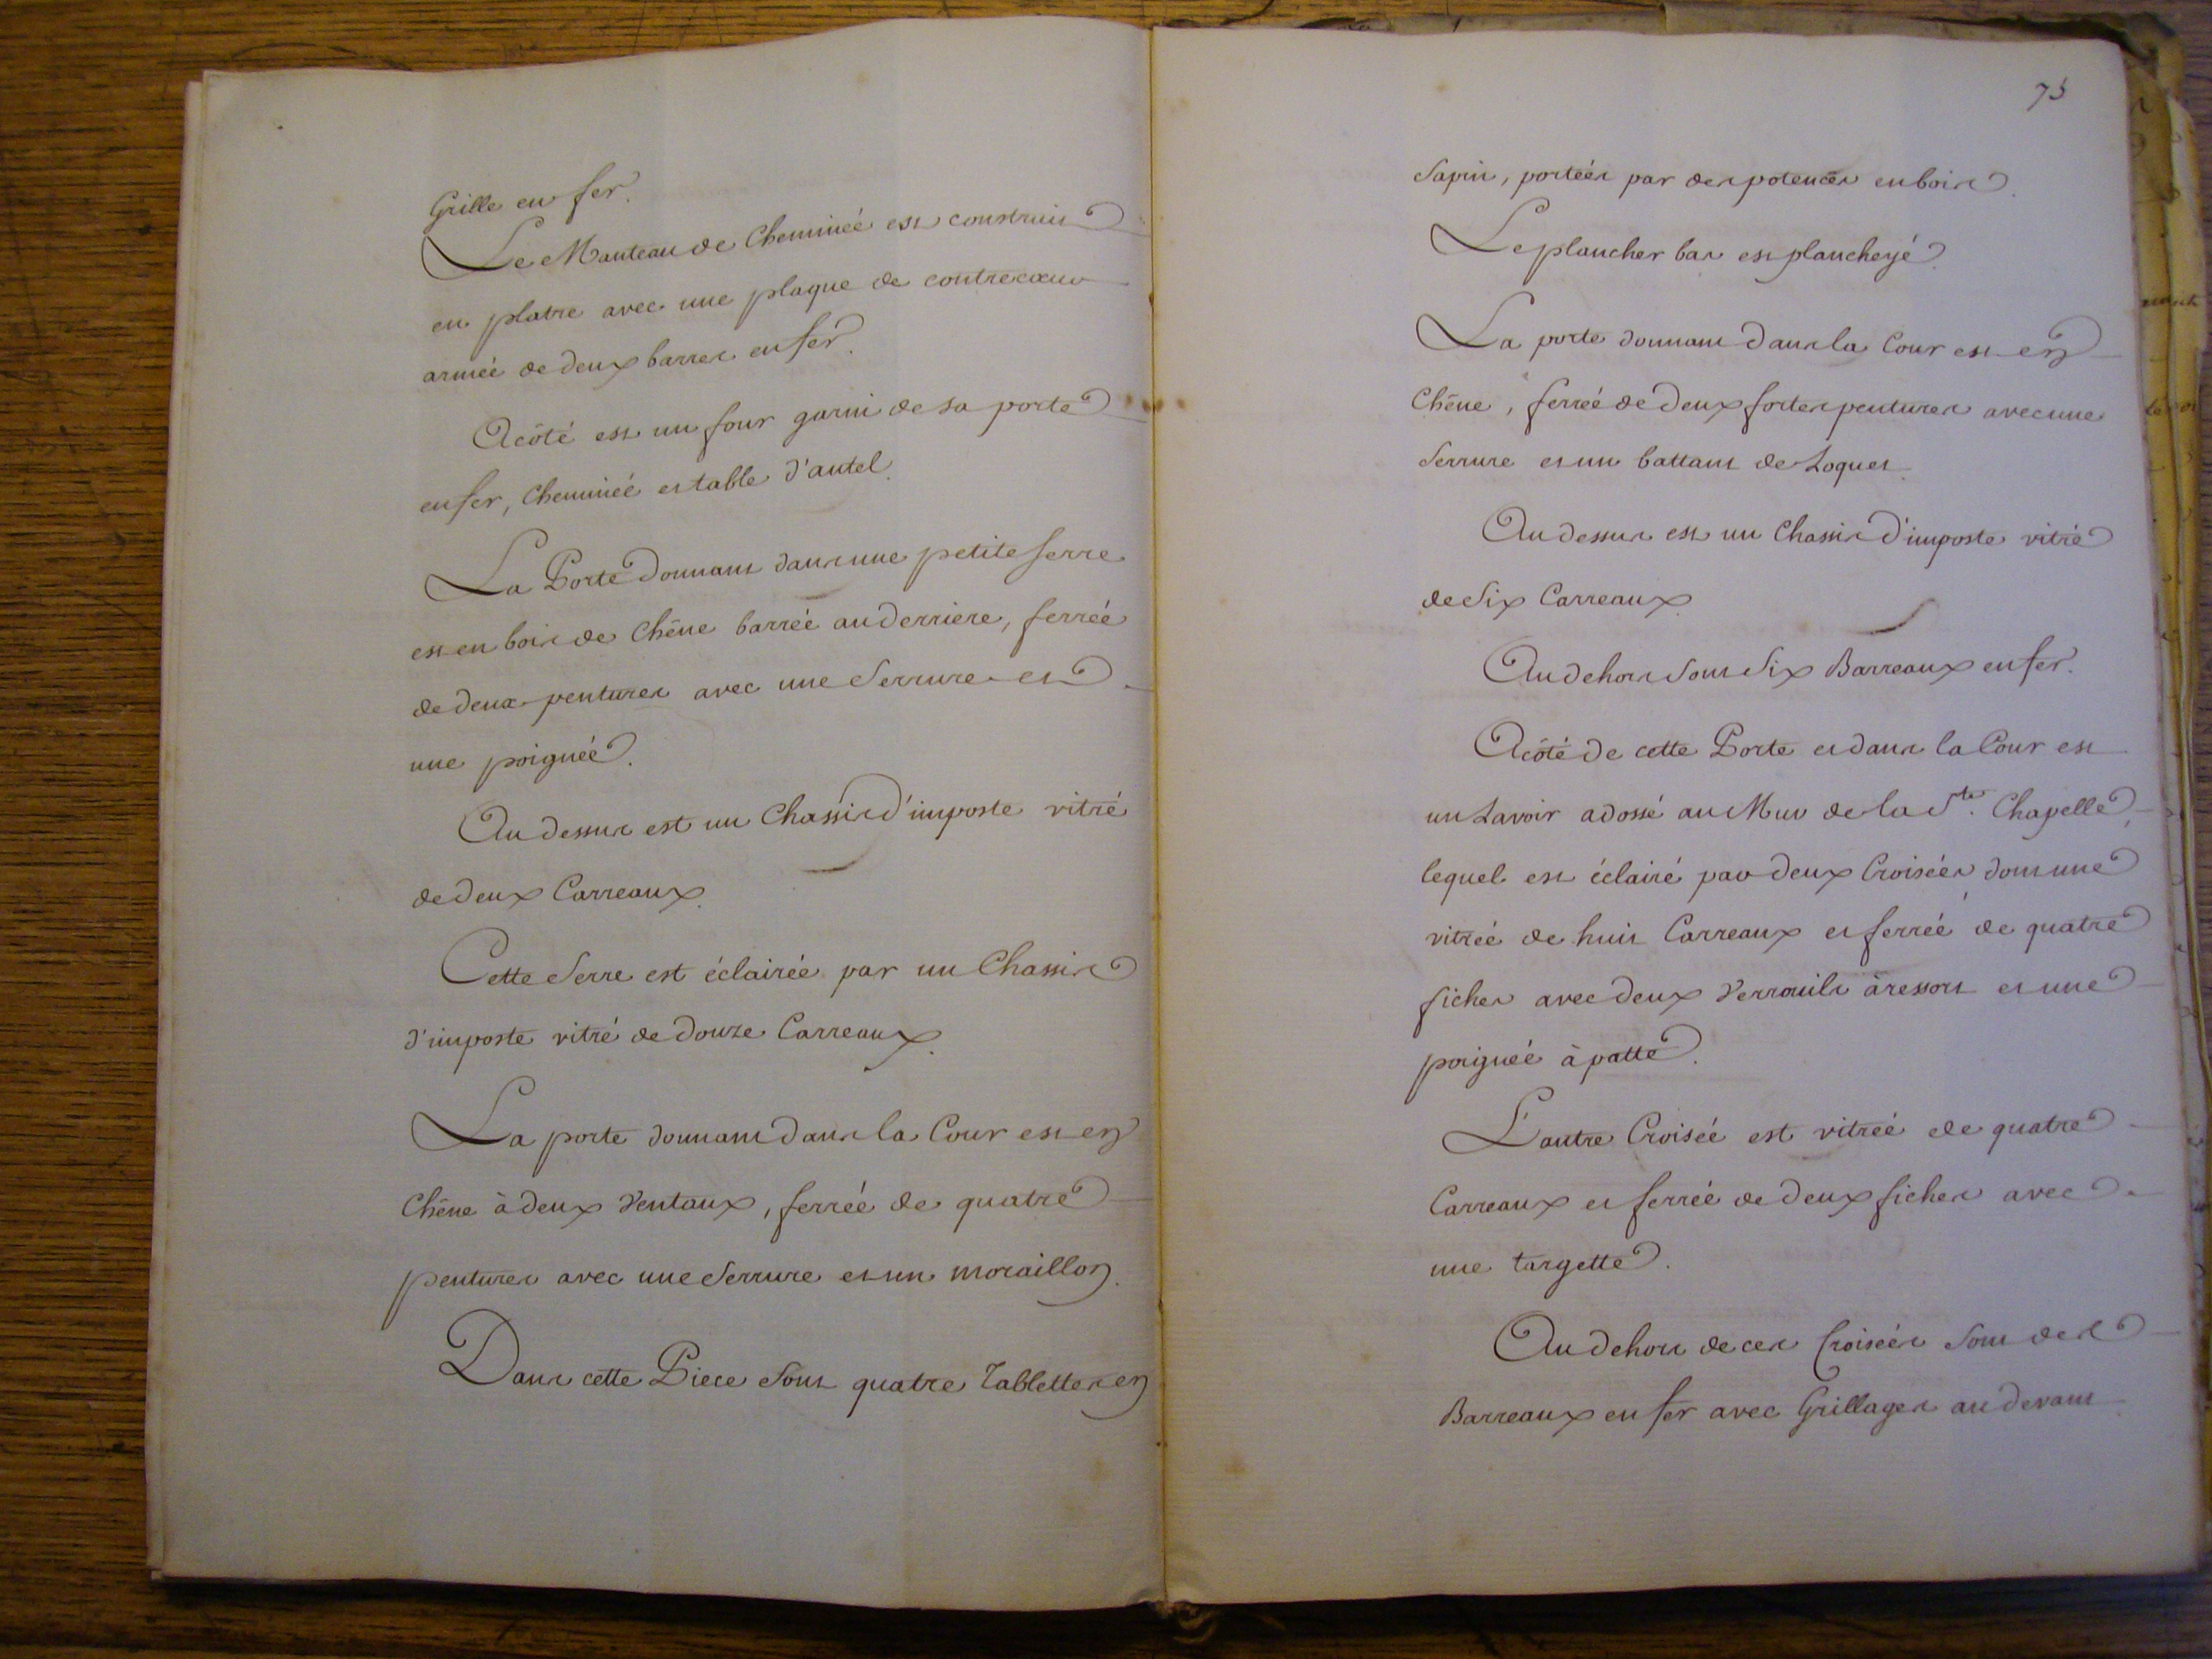 Grille en fer.
Le Manteau de Cheminée est construit
en platre avec une plaque de contrecœur
armée de deux barres en fer.
A côté est un four garni de sa porte
en fer, Cheminée et table d'autel.
La Porte donnant dans une petite serre
est en bois de Chêne barrée au derriere, ferrée
de deux pentures avec une Serrure et
une poignée.
Au dessus est un Chassis d'imposte vitré
de deux Carreaux.
Cette Serre est éclairée par un Chassis
d'imposte vitré de douze Carreaux.
La porte donnant dans la Cour est en
Chêne à deux Ventaux, ferrée de quatre
pentures avec une Serrure et un moraillon.
Dans cette Piece sont quatre Tablettes en
75
Sapin, portées par des potences en bois.
Le plancher bas est plancheyé.
La porte donnant dans la Cour est en
Chêne, ferrée de deux fortes pentures avec une
Serrure et un battant de Loquet.
Au dessus est un Chassis d'imposte vitré
de Six Carreaux.
Au dehors sont Six Barreaux en fer.
A côté de cette Porte et dans la Cour est
un Lavoir adossé au Mur de la Ste. Chapelle,
lequel est éclairé par deux Croisées dont une
vitrée de huit Carreaux et ferrée de quatre
fiches avec deux Verrouils à ressort et une
poignée à patte.
L'autre Croisée est vitrée de quatre
Carreaux et ferrée de deux fiches avec
une targette.
Au dehors de ces Croisées sont des
Barreaux en fer avec Grillages au devant